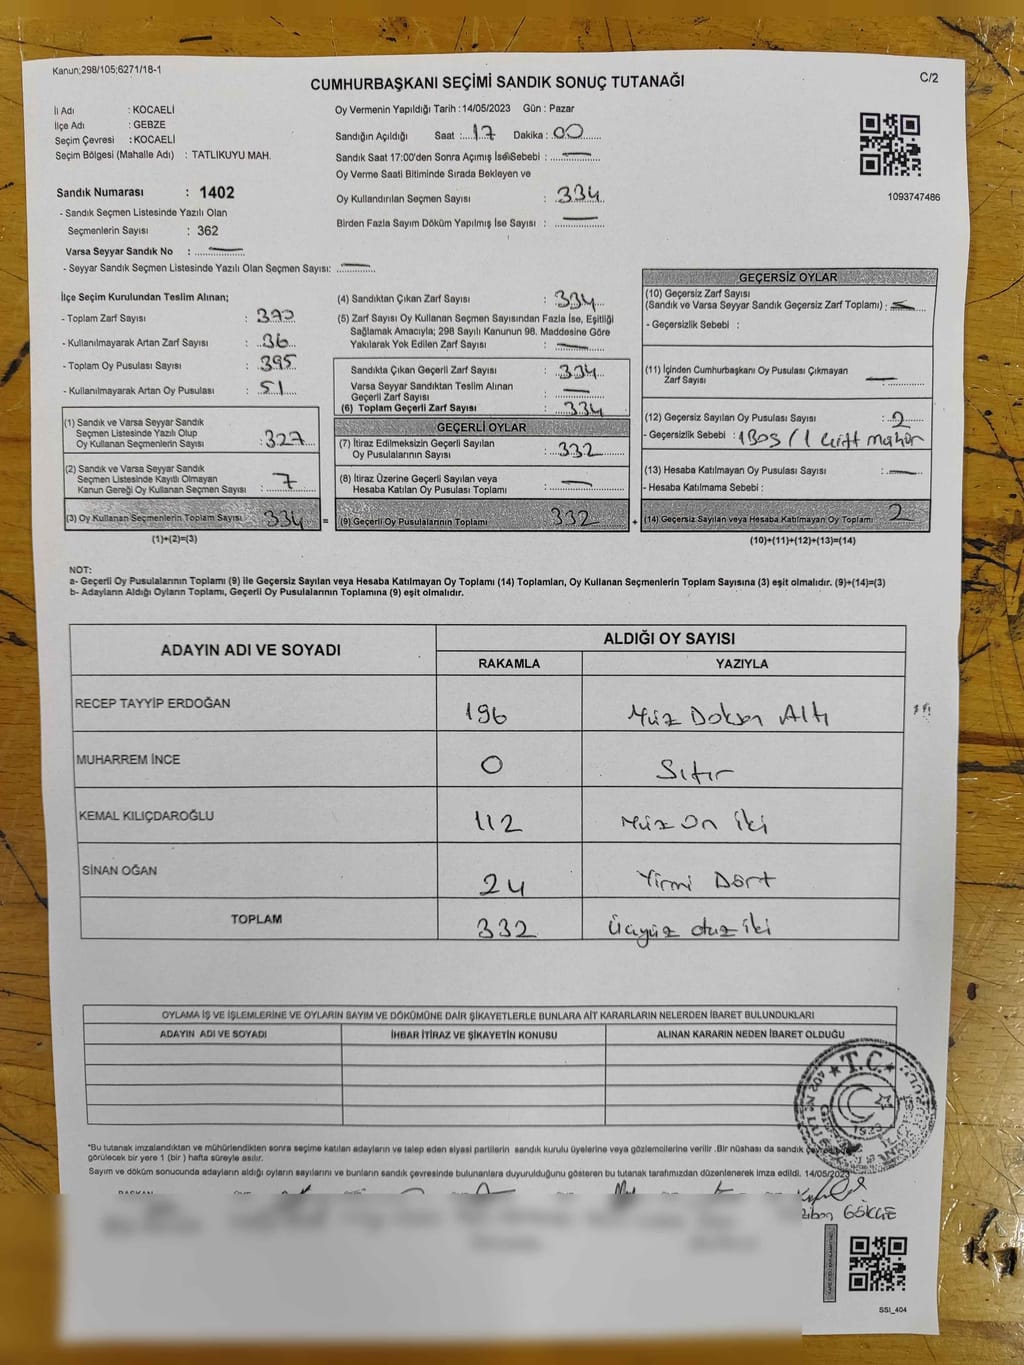 Kanun;298/105;6271/18-1
C/2
CUMHURBAŞKANI SEÇİMİ SANDIK SONUÇ TUTANAĞI
İl Adı : KOCAELİ
İlçe Adı : GEBZE
Seçim Çevresi : KOCAELİ
Seçim Bölgesi (Mahalle Adı) : TATLIKUYU MAH.
Sandık Numarası : 1402
- Sandık Seçmen Listesinde Yazılı Olan
Seçmenlerin Sayısı : 362
Varsa Seyyar Sandık No :
- Seyyar Sandık Seçmen Listesinde Yazılı Olan Seçmen Sayısı:
Oy Vermenin Yapıldığı Tarih : 14/05/2023 Gün : Pazar
Sandığın Açıldığı Saat : 17 Dakika : 00
Sandık Saat 17:00'den Sonra Açımış İseSebebi :
Oy Verme Saati Bitiminde Sırada Bekleyen ve
Oy Kullandırılan Seçmen Sayısı : 334
Birden Fazla Sayım Döküm Yapılmış İse Sayısı :
1093747486
İlçe Seçim Kurulundan Teslim Alınan;
- Toplam Zarf Sayısı :
- Kullanılmayarak Artan Zarf Sayısı : 36
- Toplam Oy Pusulası Sayısı : 395
- Kullanılmayarak Artan Oy Pusulası : 51
(1) Sandık ve Varsa Seyyar Sandık
Seçmen Listesinde Yazılı Olup
Oy Kullanan Seçmenlerin Sayısı : 327
(2) Sandık ve Varsa Seyyar Sandık
Seçmen Listesinde Kayıtlı Olmayan
Kanun Gereği Oy Kullanan Seçmen Sayısı : 7
(3) Oy Kullanan Seçmenlerin Toplam Sayısı 334 =
(1)+(2)=(3)
(4) Sandıktan Çıkan Zarf Sayısı : 334
(5) Zarf Sayısı Oy Kullanan Seçmen Sayısından Fazla İse, Eşitliği
Sağlamak Amacıyla; 298 Sayılı Kanunun 98. Maddesine Göre
Yakılarak Yok Edilen Zarf Sayısı :
Sandıkta Çıkan Geçerli Zarf Sayısı : 334
Varsa Seyyar Sandıktan Teslim Alınan
Geçerli Zarf Sayısı :
(6) Toplam Geçerli Zarf Sayısı : 334
GEÇERLİ OYLAR
(7) İtiraz Edilmeksizin Geçerli Sayılan
Oy Pusulalarının Sayısı : 332
(8) İtiraz Üzerine Geçerli Sayılan veya
Hesaba Katılan Oy Pusulası Toplamı :
(9) Geçerli Oy Pusulalarının Toplamı 332 +
GEÇERSİZ OYLAR
(10) Geçersiz Zarf Sayısı
(Sandık ve Varsa Seyyar Sandık Geçersiz Zarf Toplamı) :
- Geçersizlik Sebebi :
(11) İçinden Cumhurbaşkanı Oy Pusulası Çıkmayan
Zarf Sayısı :
(12) Geçersiz Sayılan Oy Pusulası Sayısı : 2
- Geçersizlik Sebebi : 1 Boş / 1 Çift mühür
(13) Hesaba Katılmayan Oy Pusulası Sayısı :
- Hesaba Katılmama Sebebi :
(14) Geçersiz Sayılan veya Hesaba Katılmayan Oy Toplamı 2
(10)+(11)+(12)+(13)=(14)
NOT:
a- Geçerli Oy Pusulalarının Toplamı (9) ile Geçersiz Sayılan veya Hesaba Katılmayan Oy Toplamı (14) Toplamları, Oy Kullanan Seçmenlerin Toplam Sayısına (3) eşit olmalıdır. (9)+(14)=(3)
b- Adayların Aldığı Oyların Toplamı, Geçerli Oy Pusulalarının Toplamına (9) eşit olmalıdır.
ADAYIN ADI VE SOYADI
ALDIĞI OY SAYISI
RAKAMLA YAZIYLA
RECEP TAYYİP ERDOĞAN 196 Yüz Doksan Altı
MUHARREM İNCE 0 Sıfır
KEMAL KILIÇDAROĞLU 112 Yüz On iki
SİNAN OĞAN 24 Yirmi Dört
TOPLAM 332 Üçyüz otuz iki
OYLAMA İŞ VE İŞLEMLERİNE VE OYLARIN SAYIM VE DÖKÜMÜNE DAİR ŞİKAYETLERLE BUNLARA AİT KARARLARIN NELERDEN İBARET BULUNDUKLARI
ADAYIN ADI VE SOYADI İHBAR İTİRAZ VE ŞİKAYETİN KONUSU ALINAN KARARIN NEDEN İBARET OLDUĞU
T.C.
1923
*Bu tutanak imzalandıktan ve mühürlendikten sonra seçime katılan adayların ve talep eden siyasi partilerin sandık kurulu üyelerine veya gözlemcilerine verilir .Bir nüshası da sandık
görülecek bir yere 1 (bir ) hafta süreyle asılır.
Sayım ve döküm sonucunda adayların aldığı oyların sayılarını ve bunların sandık çevresinde bulunanlara duyurulduğunu gösteren bu tutanak tarafımızdan düzenlenerek imza edildi. 14/05/2023
GÖKÇE
SSI_404